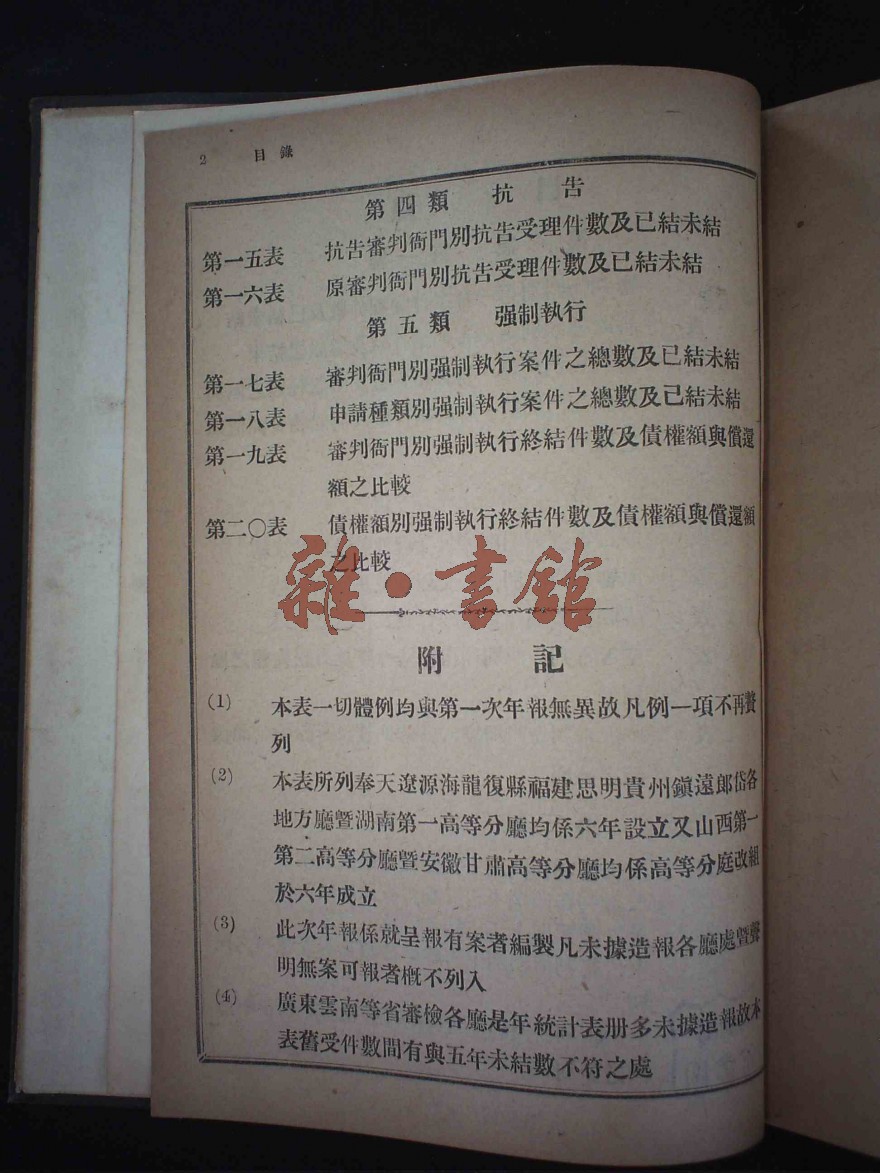 2 目錄
第四類 抗告
第一五表 抗告審判衙門別抗告受理件數及已結未結
第一六表 原審判衙門別抗告受理件數及已結未結
第五類 强制執行
第一七表 審判衙門別强制執行案件之總數及已結未結
第一八表 申請種類別强制執行案件之總數及已結未結
第一九表 審判衙門別强制執行終結件數及債權額與償還
額之比較
第二〇表 債權額別强制執行終結件數及債權額與償還額
之比較
雜·書館
附記
(1) 本表一切體例均與第一次年報無異故凡例一項不再贅
列
(2) 本表所列奉天遼源海龍復縣福建思明貴州鎭遠郎岱各
地方廳暨湖南第一高等分廳均係六年設立又山西第一
第二高等分廳暨安徽甘肅高等分廳均係高等分庭改組
於六年成立
(3) 此次年報係就呈報有案者編製凡未據造報各廳處暨聲
明無案可報者槪不列入
(4) 廣東雲南等省審檢各廳是年統計表册多未據造報故本
表舊受件數間有與五年未結數不符之處